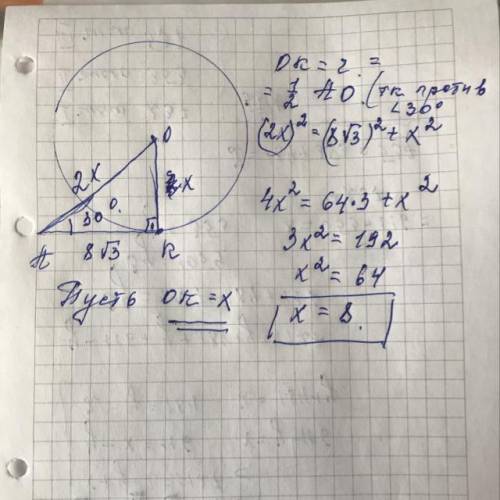 OK = r =
= 1/2 AO (тк против
∠30°
(2x)² = (8√3)² + x²
4x² = 64·3 + x²
3x² = 192
x² = 64
x = 8.
O
2x
x
30°
A
8√3
K
Пусть OK = x